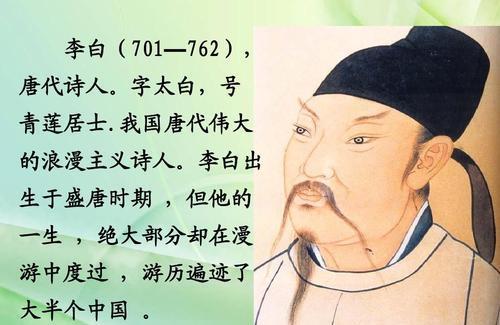 李白（701—762），
唐代诗人。字太白，号
青莲居士.我国唐代伟大
的浪漫主义诗人。李白出
生于盛唐时期 ，但他的
一生 ，绝大部分却在漫
游中度过 ，游历遍迹了
大半个中国 。